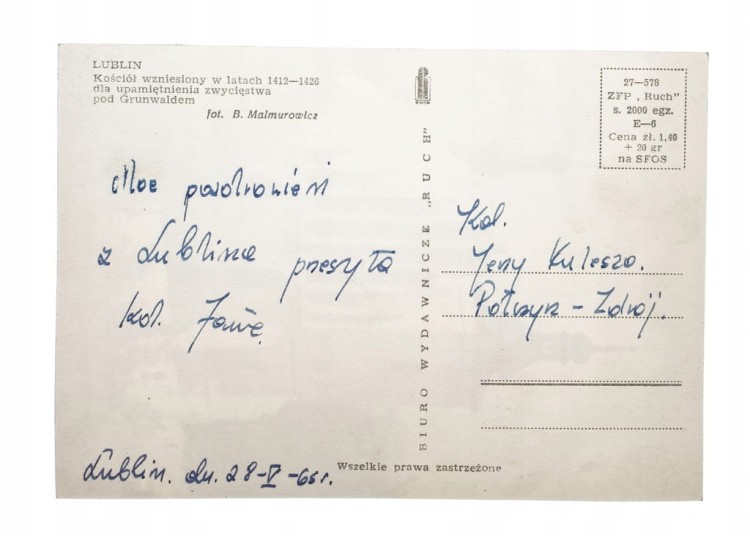 LUBLIN
Kościół wzniesiony w latach 1412—1426
dla upamiętnienia zwycięstwa
pod Grunwaldem
fot. B. Malmurowicz
27—578
ZFP „Ruch"
s. 2000 egz.
E—6
Cena zł. 1,40
+ 20 gr
na SFOS
Moc pozdrowień
z Lublina przesyła
kol.
Kol.
Jerzy Kulesza.
Połczyn - Zdrój.
BIURO WYDAWNICZE „RUCH"
Lublin. dn. 28-V-65r.
Wszelkie prawa zastrzeżone